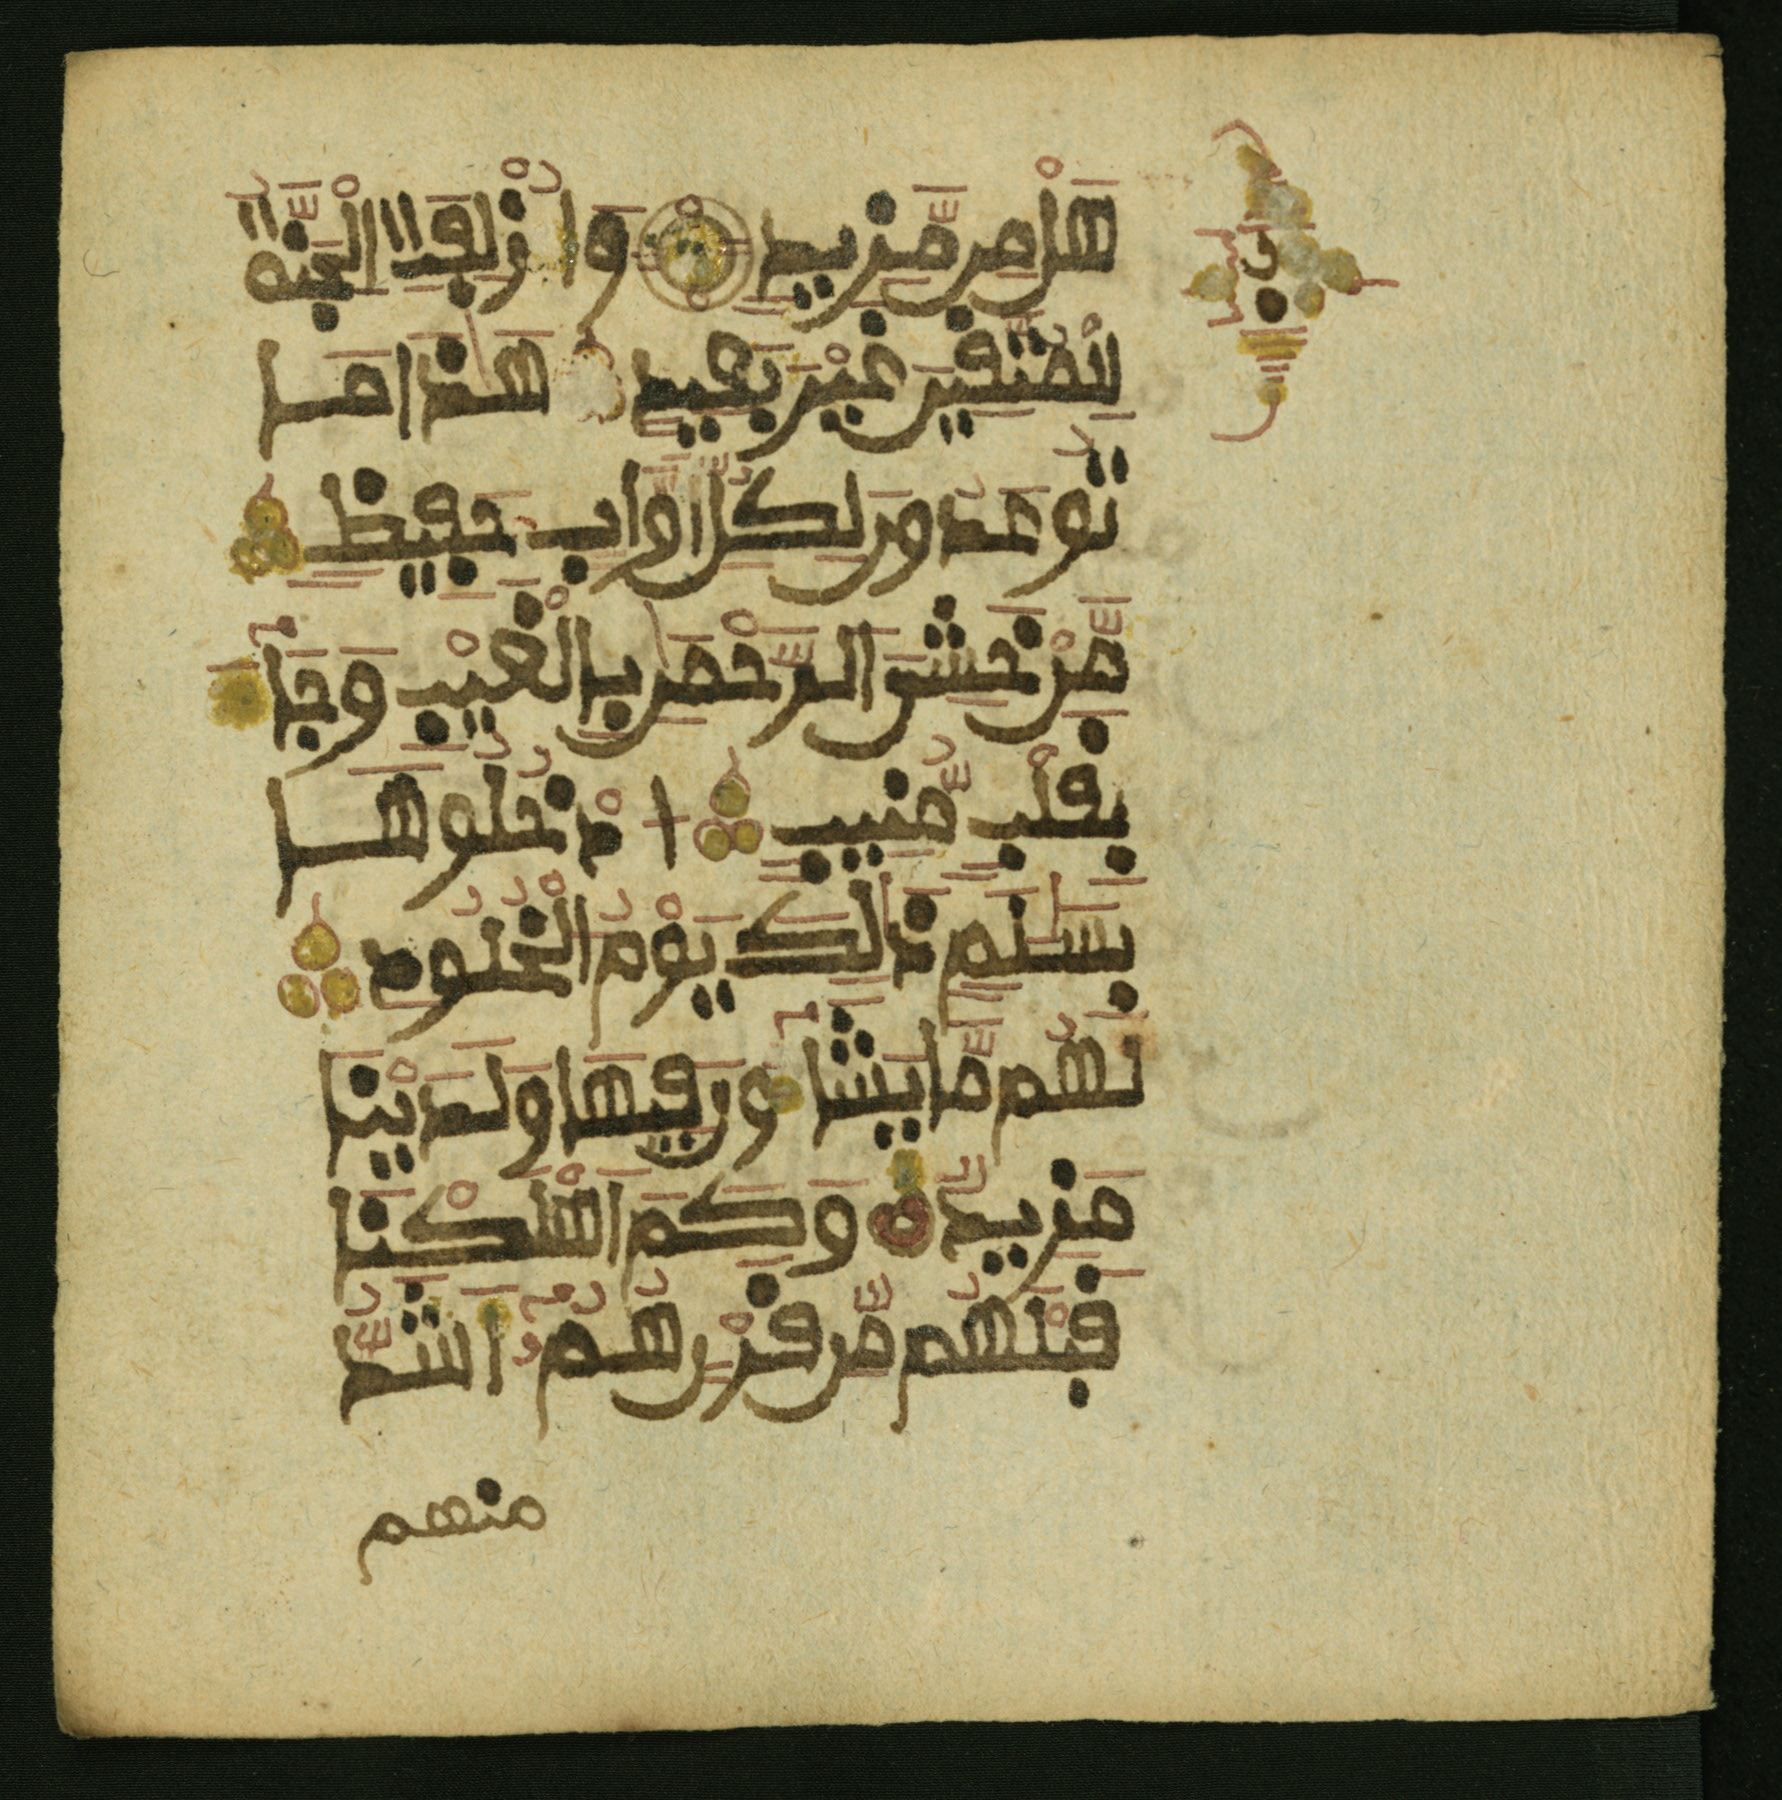 هَلْ مِن مَّزِيدٍ وَأُزْلِفَتِ الْجَنَّةُ
لِلْمُتَّقِينَ غَيْرَ بَعِيدٍ هَٰذَا مَا
تُوعَدُونَ لِكُلِّ أَوَّابٍ حَفِيظٍ
مَّنْ خَشِيَ الرَّحْمَٰنَ بِالْغَيْبِ وَجَآءَ
بِقَلْبٍ مُّنِيبٍ ادْخُلُوهَا
بِسَلَٰمٍ ذَٰلِكَ يَوْمُ الْخُلُودِ
لَهُم مَّا يَشَآءُونَ فِيهَا وَلَدَيْنَا
مَزِيدٌ وَكَمَ اَهْلَكْنَا
قَبْلَهُم مِّن قَرْنٍ هُمُ أَشَدُّ
منهم